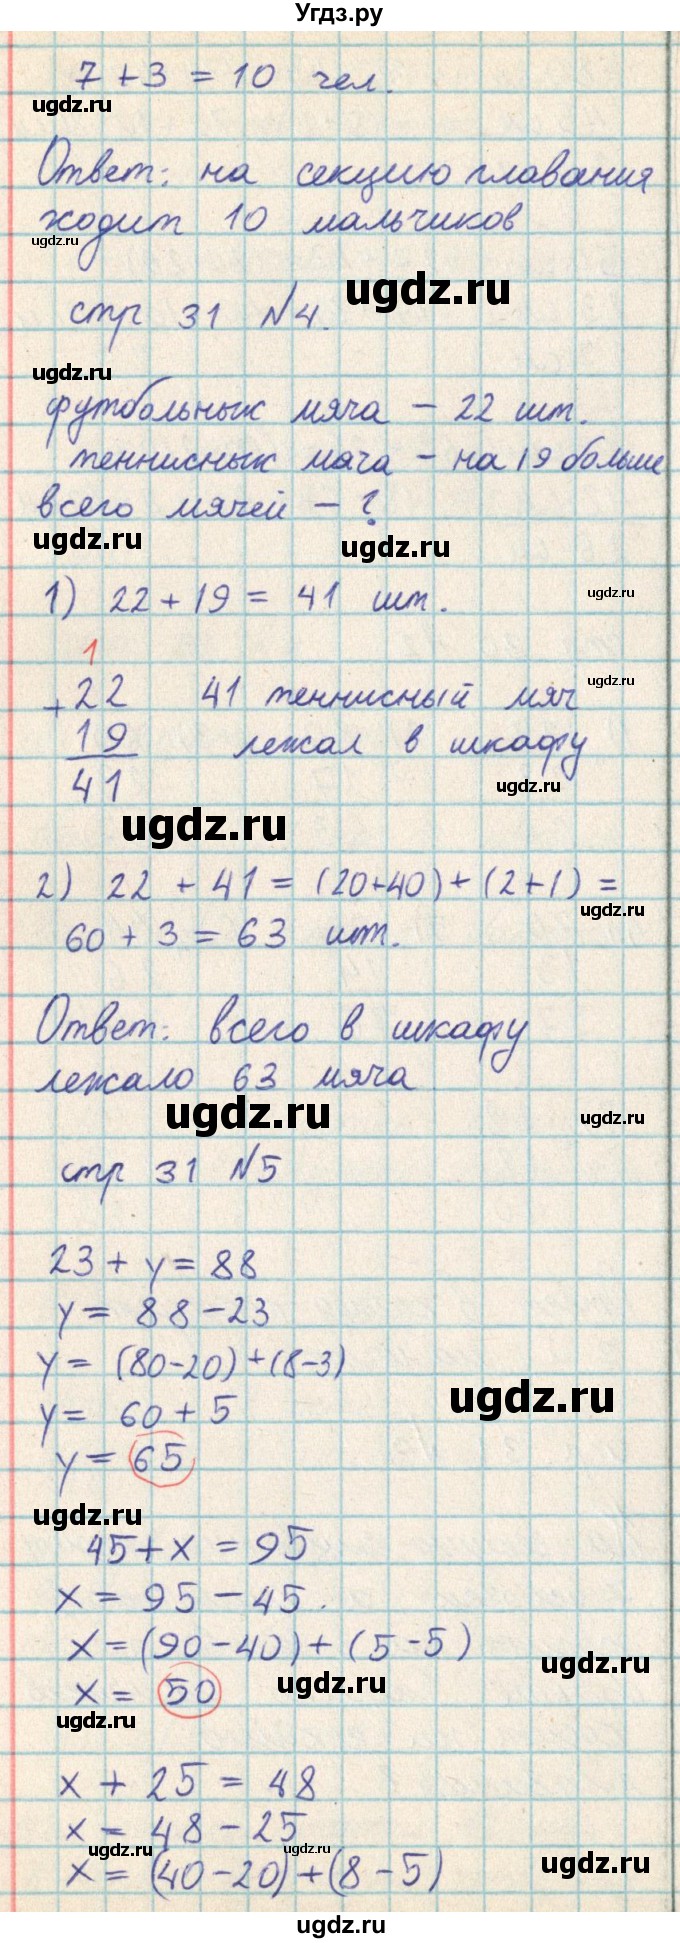 Угдз.ру
7 + 3 = 10 чел.
ugdz.ru
Ответ: на секцию плавания
ходит 10 мальчиков
ugdz.ru
ugdz.ru
стр 31 №4.
ugdz.ru
футбольных мяча – 22 шт.
теннисных мяча – на 19 больше
всего мячей – ?
ugdz.ru
ugdz.ru
1) 22 + 19 = 41 шт.
ugdz.ru
1
ugdz.ru
+ 22 41 теннисный мяч
19 лежал в шкафу
41
ugdz.ru
ugdz.ru
2) 22 + 41 = (20+40) + (2+1) =
ugdz.ru
60 + 3 = 63 шт.
Ответ: всего в шкафу
лежало 63 мяча
ugdz.ru
ugdz.ru
стр 31 №5
23 + y = 88
y = 88 – 23
y = (80–20) + (8–3)
ugdz.ru
y = 60 + 5
y = 65
ugdz.ru
45 + x = 95
x = 95 – 45.
x = (90 – 40) + (5 – 5)
ugdz.ru
ugdz.ru
x = 50
ugdz.ru
x + 25 = 48
x = 48 – 25
ugdz.ru
ugdz.ru
x = (40 – 20) + (8 – 5)
ugdz.ru
ugdz.ru